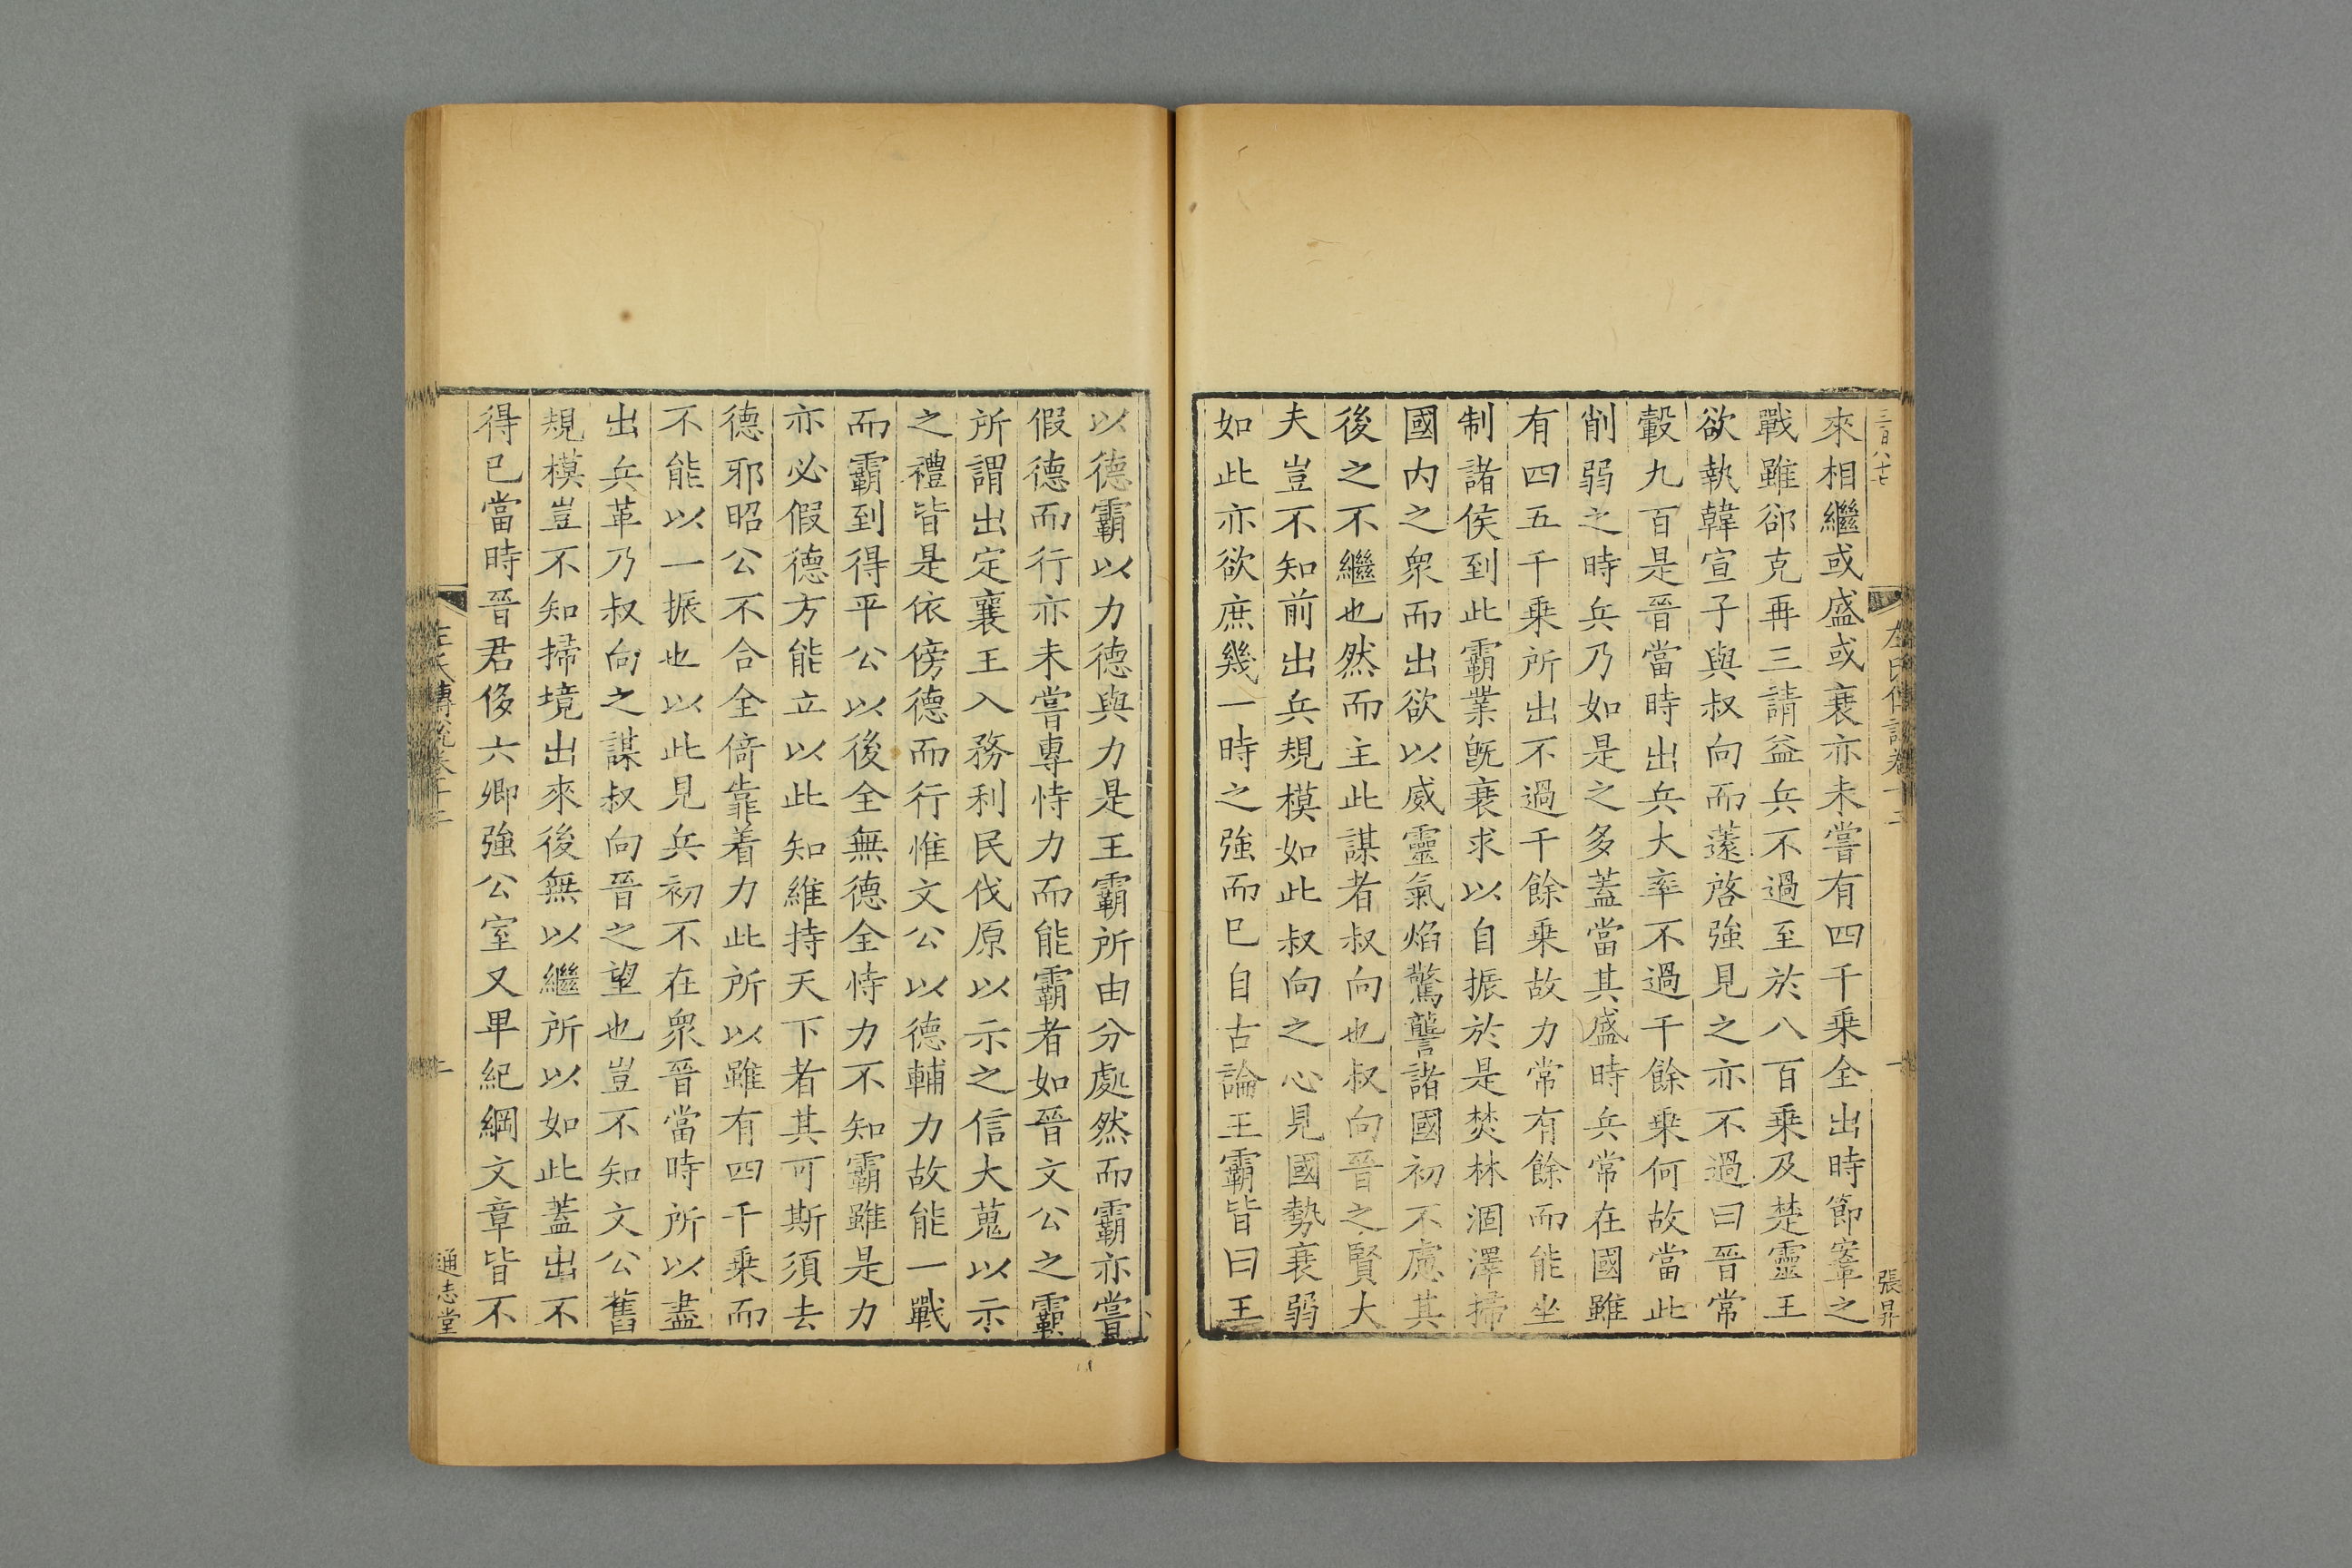 三百八十七
左氏傳說卷十二
一
張昇
來相繼或盛或衰亦未嘗有四千乗全出時節鞌之
戰雖郤克再三請益兵不過至於八百乗及楚靈王
欲執韓宣子與叔向而薳啓強見之亦不過曰晉常
轂九百是晉當時出兵大率不過千餘乗何故當此
削弱之時兵乃如是之多蓋當其盛時兵常在國雖
有四五千乗所出不過千餘乗故力常有餘而能坐
制諸侯到此霸業旣衰求以自振於是焚林涸澤掃
國内之衆而出欲以威靈氣焰驚讋諸國初不慮其
後之不繼也然而主此謀者叔向也叔向晉之賢大
夫豈不知前出兵規模如此叔向之心見國勢衰弱
如此亦欲庶幾一時之強而已自古論王霸皆曰王
以德霸以力德與力是王霸所由分處然而霸亦嘗
假德而行亦未嘗專恃力而能霸者如晉文公之霸
所謂出定襄王入務利民伐原以示之信大蒐以示
之禮皆是依傍德而行惟文公以德輔力故能一戰
而霸到得平公以後全無德全恃力不知霸雖是力
亦必假德方能立以此知維持天下者其可斯須去
德邪昭公不合全倚靠着力此所以雖有四千乗而
不能以一振也以此見兵初不在衆晉當時所以盡
出兵革乃叔向之謀叔向晉之望也豈不知文公舊
規模豈不知掃境出來後無以繼所以如此蓋出不
得已當時晉君侈六卿強公室又卑紀綱文章皆不
左氏傳說卷十二
二
通志堂